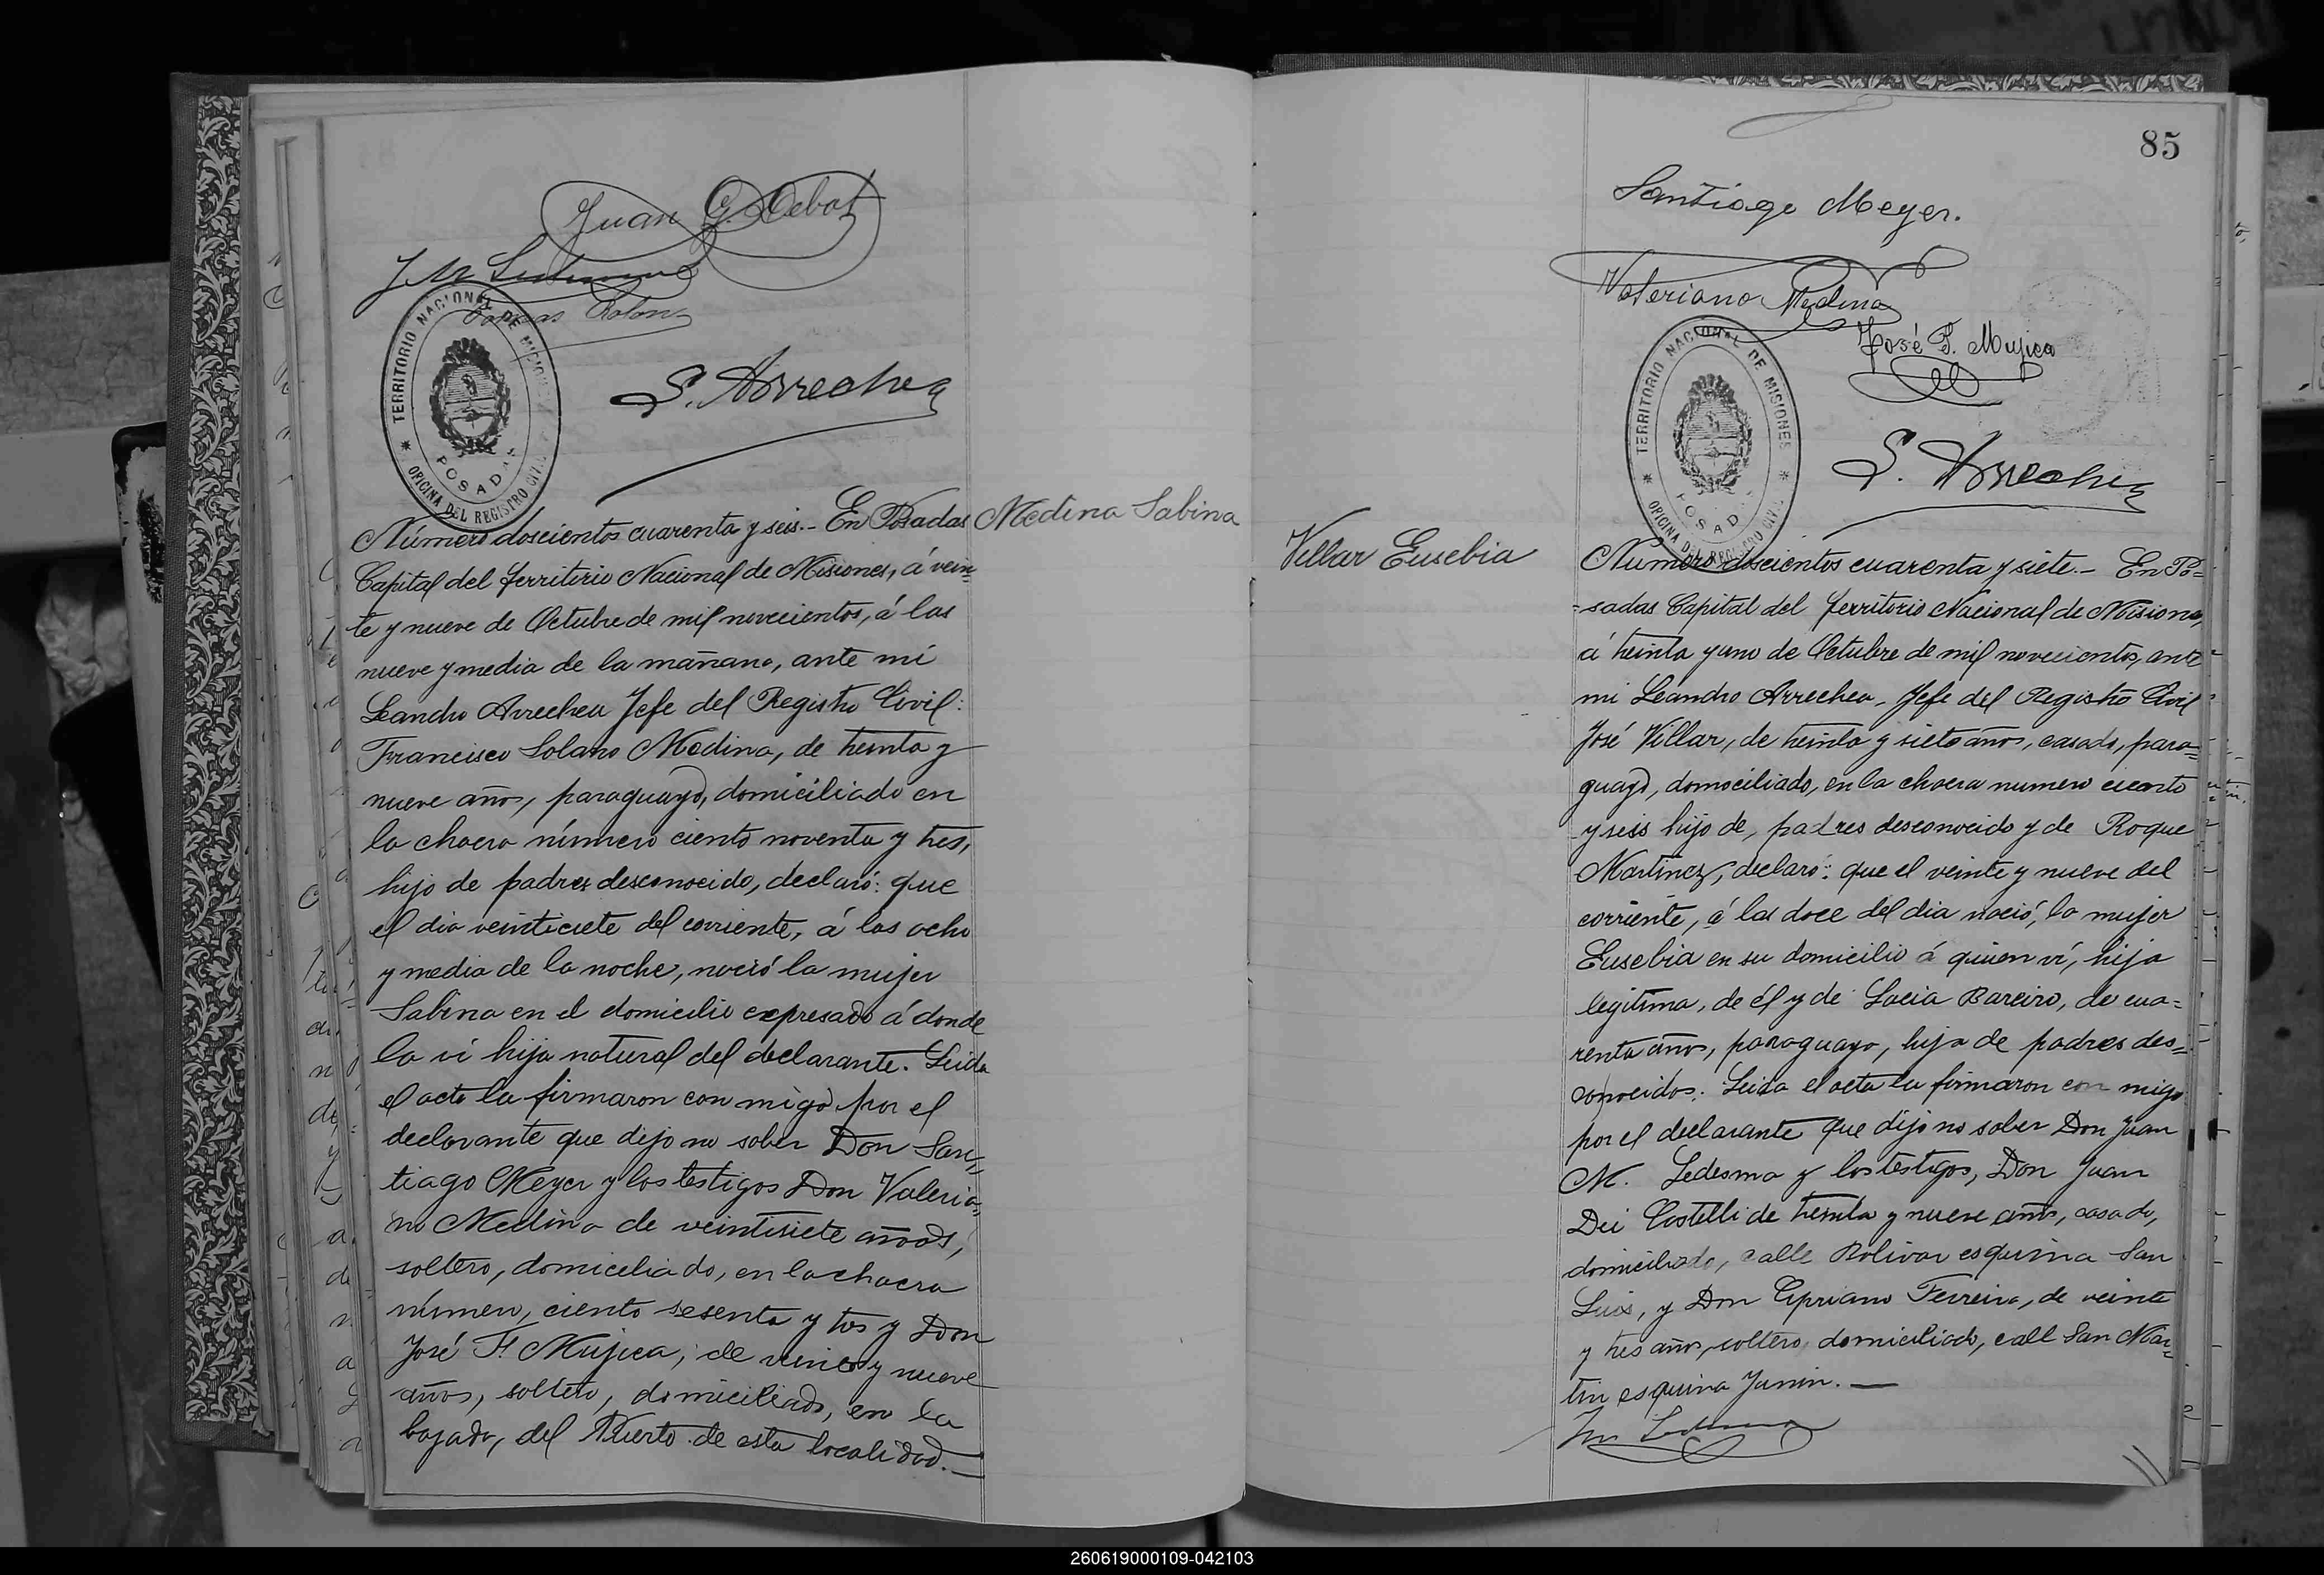 Juan G. Debat
S. Arrechea
TERRITORIO NACIONAL DE MISIONES
POSADAS
OFICINA DEL REGISTRO CIVIL
Medina Sabina
Número doscientos cuarenta y seis.- En Posadas
Capital del Territorio Nacional de Misiones, á vein-
te y nueve de Octubre de mil novecientos, á las
nueve y media de la mañana, ante mí
Leandro Arrechea Jefe del Registro Civil:
Francisco Solano Medina, de treinta y
nueve años, paraguayo, domiciliado en
la chacra número ciento noventa y tres,
hijo de padres desconocido, declaró: que
el dia veintisiete del corriente, á las ocho
y media de la noche, nació la mujer
Sabina en el domicilio expresado á donde
la ví hija natural del declarante. Leida
el acta la firmaron con migo por el
declarante que dijo no saber Don San-
tiago Meyer y los testigos Don Valeria-
no Medina de veintisiete años,
soltero, domiciliado, en la chacra
número, ciento sesenta y tres y Don
José F. Mujica, de veinte y nueve
años, soltero, domiciliado, en la
bajada, del Puerto de esta localidad.-
85
Santiago Meyer.
Valeriano Medina
José F. Mujica
S. Arrechea
TERRITORIO NACIONAL DE MISIONES
POSADAS
OFICINA DEL REGISTRO CIVIL
Villar Eusebia
Numero doscientos cuarenta y siete.- En Po=
=sadas Capital del Territorio Nacional de Misiones,
á treinta y uno de Octubre de mil novecientos, ante
mi Leandro Arrechea, Jefe del Registro Civil
José Villar, de treinta y siete años, casado, para=
guayo, domociliado, en la chacra numero ciento
y seis hijo de, padres desconocido y de Roque
Martinez, declaró: que el veinte y nueve del
corriente, á las doce del dia nació, la mujer
Eusebia en su domicilio á quien ví, hija
legitima, de él y de Lucia Bareiro, de cua=
renta años, paraguaya, hija de padres des=
conocidos. Leida el acta la firmaron con migo
por el declarante que dijo no saber Don Juan
M. Ledesma y los testigos, Don Juan
Dei Castelli de treinta y nueve años, casado,
domiciliado, calle Bolivar esquina San
Luis, y Don Cipriano Ferreira, de veinte
y tres años, soltero, domiciliado, call San Mar=
tin esquina Junin. —
260619000109-042103